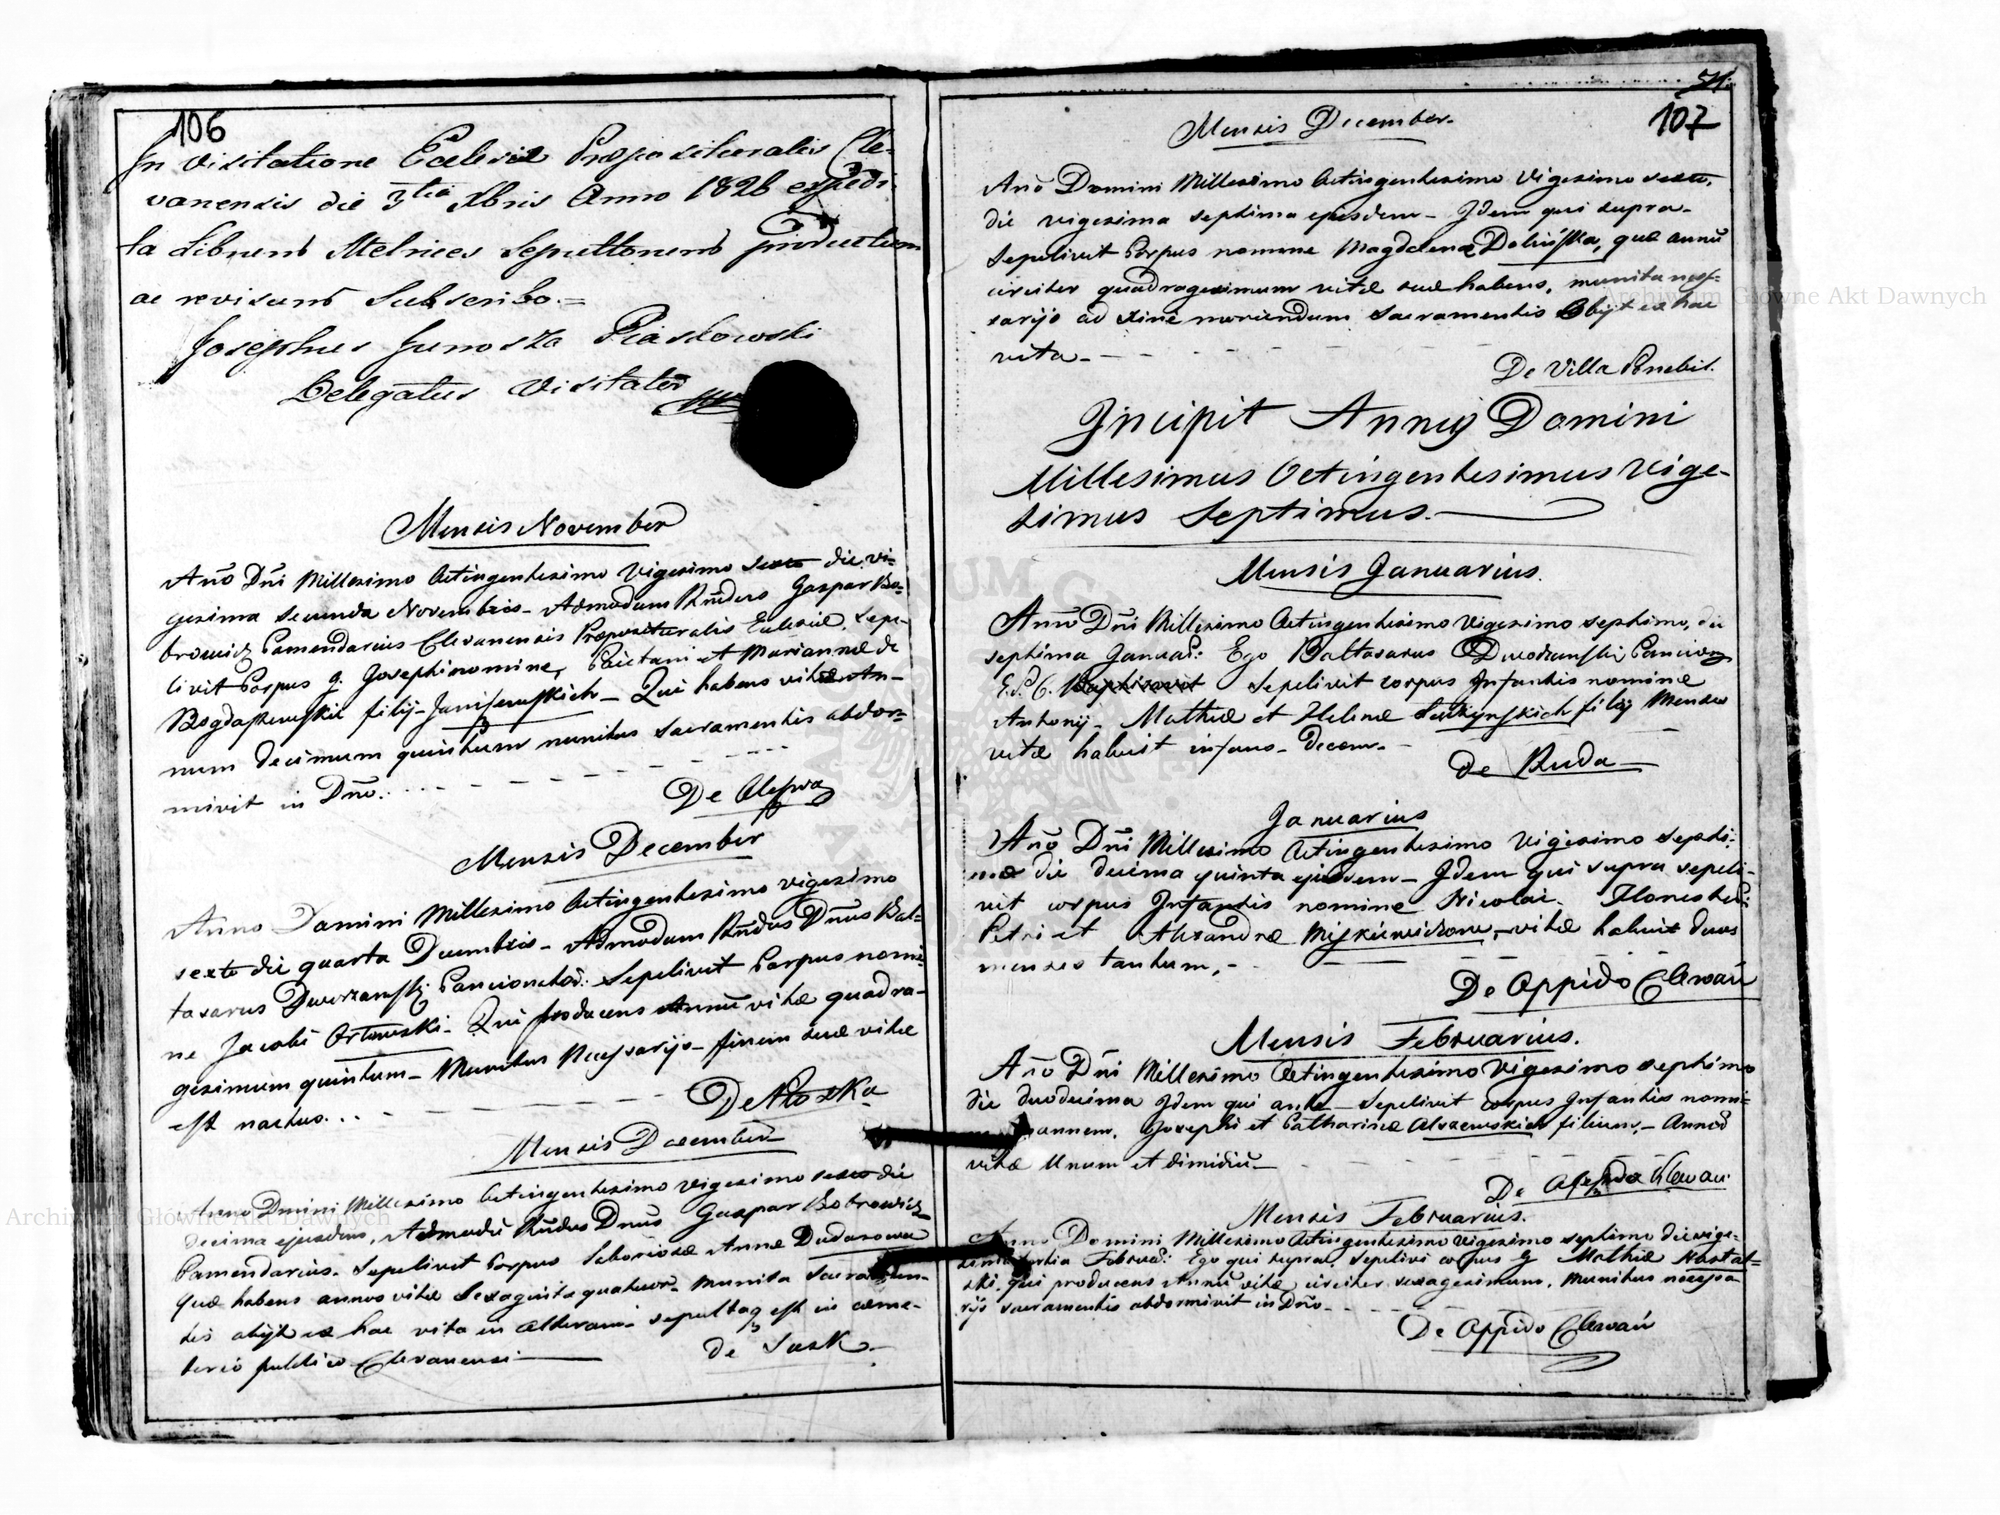 106
In Visitatione Ecclesiæ Præpositurali Cle-
vanensis die 3tia Xbris Anno 1826 expedi-
ta Librum Metrices Sepultorum productum
ac revisum Subscribo.=
Josephus Junosza Piaskowski
Delegatus Visitator
Mensis November
Año Dñi Millesimo Octingentesimo Vigesimo Sexto die vi-
gesima secunda Novembris - Admodum Rñdus Gaspar Bo-
browicz Comendarius Clevanensis Præposituralis Ecclesiæ, Sepe-
livit Corpus g. Josephi nomine, Caietani et Mariannæ de
filij - Qui habens vitæ An-
num decimum quintum munitus sacramentis obdor-
mivit in Dño.
De
Mensis December
Anno Domini Millesimo Octingentesimo vigesimo
sexto die quarta Decembris - Admodum Rñdus Dñus Bal-
tasarus Dworzanski Sepelivit Corpus nomi-
ne Jacobi Orłowski - Qui producens Annũ vitæ quadra-
gesimum quintum - Munitus Necessarijs - finem suæ vitæ
est nactus...
De
Mensis December
Anno Domini Millesimo Octingentesimo vigesimo sexto die
decima ejusdem, Admodũ Rñdus Dñus Gaspar Bobrowicz
Comendarius. Sepelivit Corpus Laboriosæ Annæ Dudarowa
Quæ habens annos vitæ Sexaginta quatuor - Munita Sacramen-
tis abijt ex hac vita in alteram - sepulta est in cæme-
terio publico Clevanensi
de Susk.
107
Mensis December.
Año Domini Millesimo Octingentesimo Vigesimo sexto,
die vigesima septima ejusdem - Idem qui supra -
Sepelivit Corpus nomine Magdalena quæ annũ
circiter quadragesimum vitæ suæ habens, munita neces-
sarijs ad sacramentis Obijt ex hac
vita.
De Villa
Incipit Annus Domini
Millesimus Octingentesimus Vige-
simus Septimus.
Mensis Januarius.
Año Dñi Millesimo Octingentesimo Vigesimo septimo, die
septima Ego Baltasarus Dworzanski
E.C. Baptisavit Sepelivit corpus Infantis nomine
Antonij - Mathiæ et Helenæ filij Menses
vitæ habuit infans - decem.
de Ruda
Januarius
Año Dñi Millesimo Octingentesimo Vigesimo septi-
mo die decima quinta ejusdem - Idem qui supra sepeli-
vit corpus Infantis nomine Nicolai.
Petri et Alexandræ vitæ habuit duos
menses tantum,
De Oppido Clewań
Mensis Februarius.
Año Dñi Millesimo Octingentesimo Vigesimo septimo
die duodecima Idem qui ante - Sepelivit corpus Infantis nomi-
Josephi et Catharinæ filium, - Annos
vitæ Unum et dimidiũ
De Clewań
Mensis Februarius.
Anno Domini Millesimo Octingentesimo Vigesimo septimo die vige-
sima tertia Ego qui supra, Sepelivi corpus g Mathiæ
ski, qui producens Annũ vitæ circiter sexagesimum, Munitus necessa-
rijs sacramentis obdormivit in Dño
De Oppido Clewań